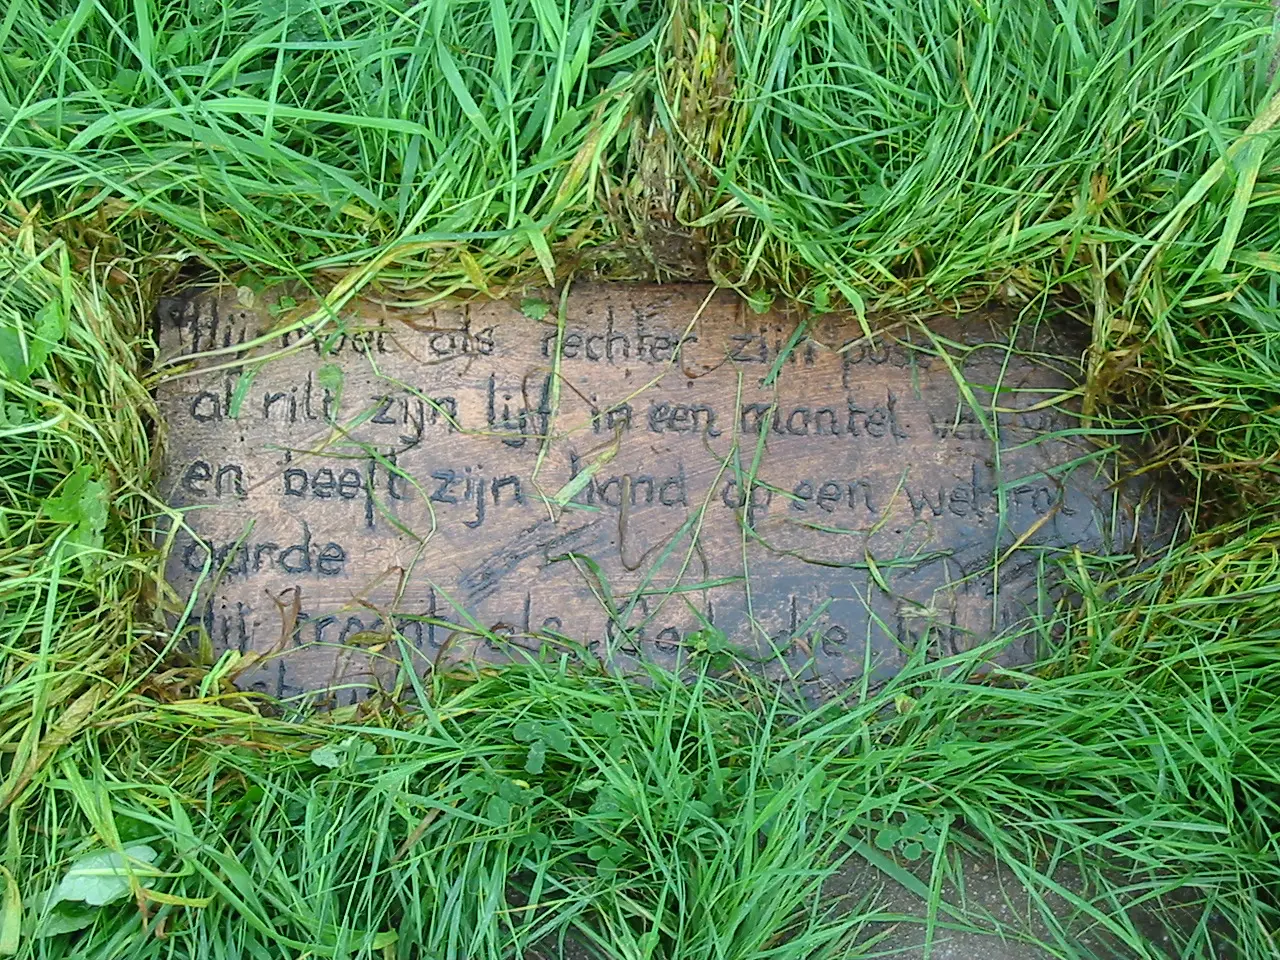 Hij moet als rechter zijn
al rilt zijn lijf in een mantel van
en beeft zijn hand op een
aarde
Hij troont als God die